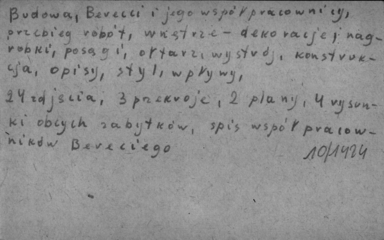 Budowa, Berecci i jego współpracownicy,
przebieg robót, wnętrze - dekoracje, nag-
robki, posągi, ołtarz, wystrój, konstruk-
cja, opisy, styl, wpływy,
24 zdjęcia, 3 przekroje, 2 plany, 4 rysun-
ki obcych zabytków, spis współpracow-
ników Berecciego
10/1424